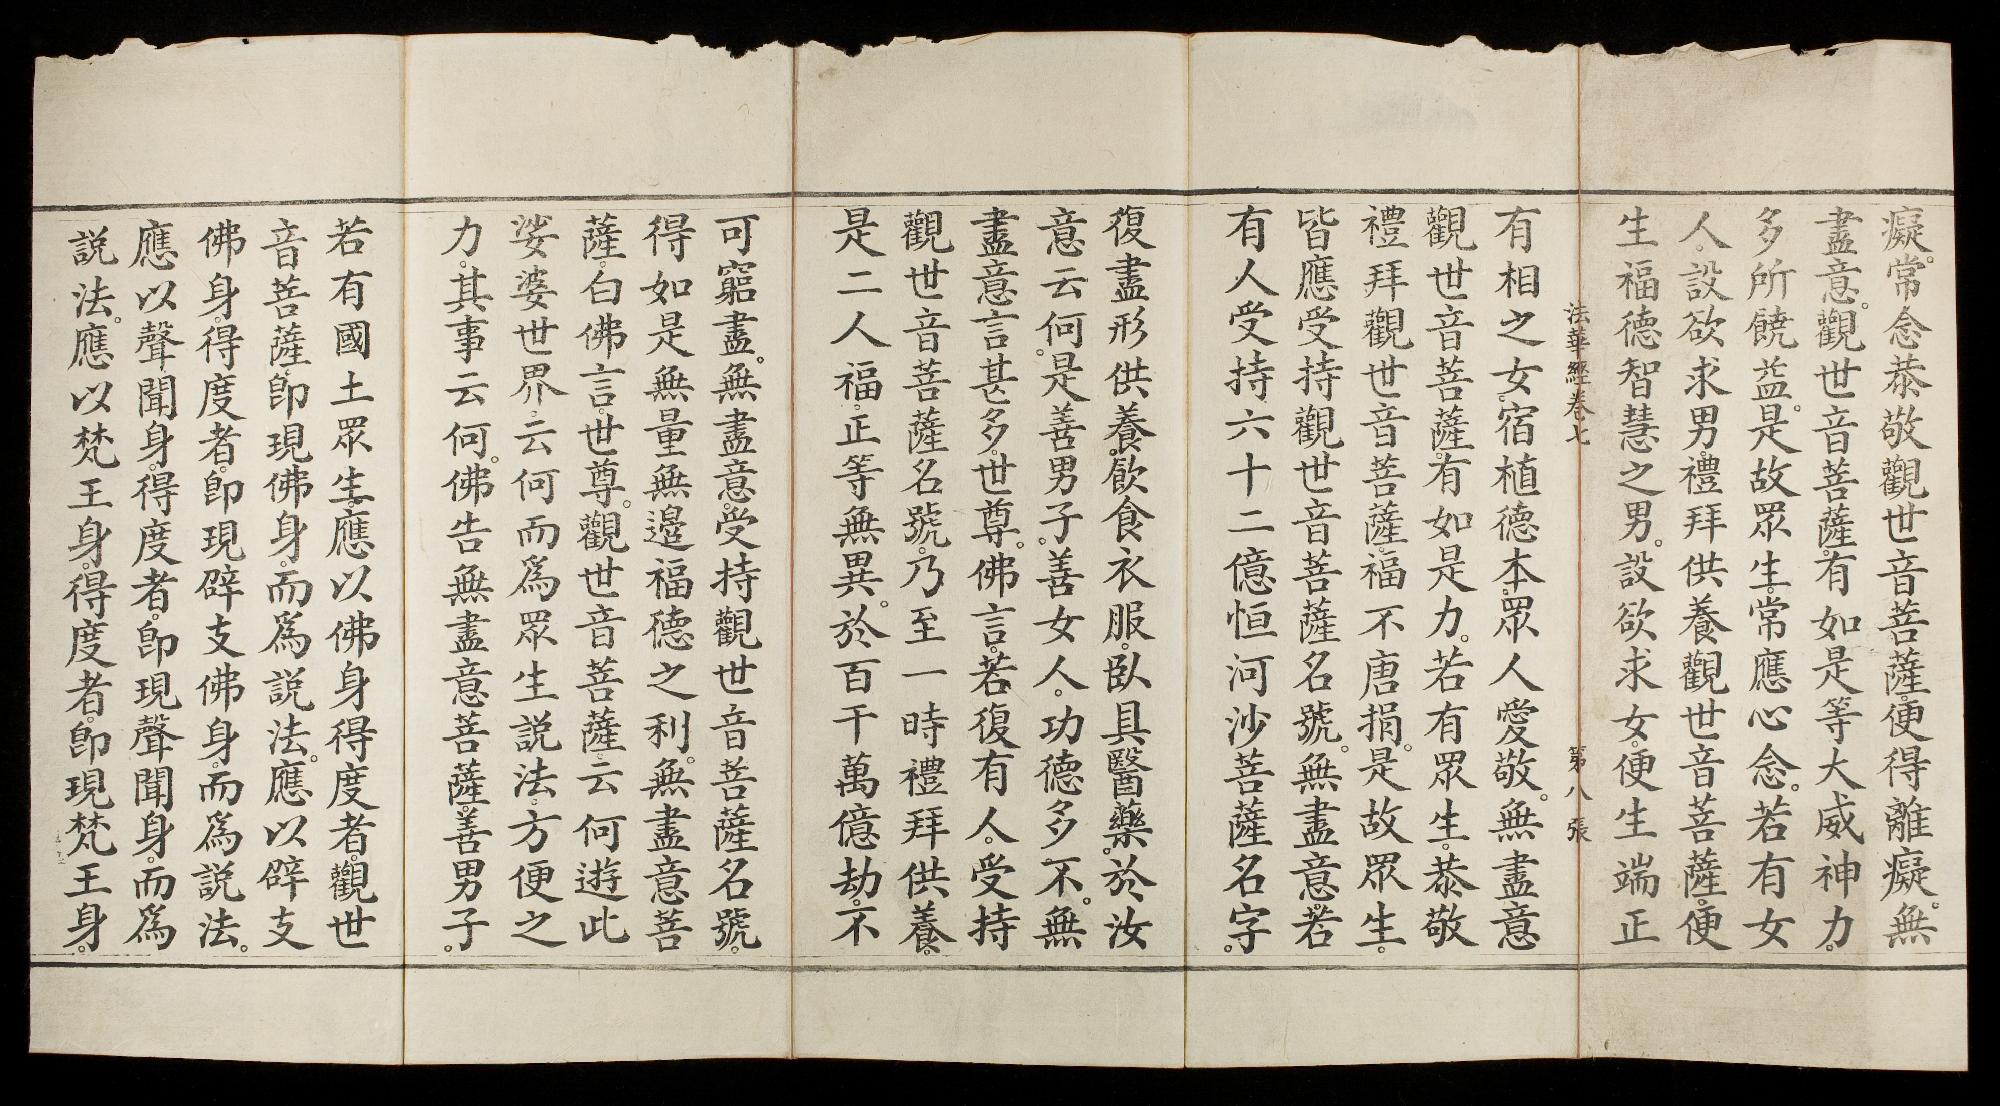 癡。常念恭敬觀世音菩薩。便得離癡。無
盡意。觀世音菩薩。有如是等大威神力。
多所饒益。是故眾生。常應心念。若有女
人。設欲求男。禮拜供養觀世音菩薩。便
生福德智慧之男。設欲求女。便生端正
法華經卷七 第八張
有相之女。宿植德本。眾人愛敬。無盡意
觀世音菩薩。有如是力。若有眾生。恭敬
禮拜觀世音菩薩。福不唐捐。是故眾生。
皆應受持觀世音菩薩名號。無盡意。若
有人受持六十二億恒河沙菩薩名字。
復盡形供養。飲食衣服。臥具醫藥。於汝
意云何。是善男子。善女人。功德多不。無
盡意言。甚多。世尊。佛言。若復有人。受持
觀世音菩薩名號。乃至一時禮拜供養。
是二人福。正等無異。於百千萬億劫。不
可窮盡。無盡意。受持觀世音菩薩名號。
得如是無量無邊福德之利。無盡意菩
薩。白佛言。世尊。觀世音菩薩。云何遊此
娑婆世界。云何而為眾生說法。方便之
力。其事云何。佛告無盡意菩薩。善男子。
若有國土眾生。應以佛身得度者。觀世
音菩薩。即現佛身。而為說法。應以辟支
佛身。得度者。即現辟支佛身。而為說法。
應以聲聞身。得度者。即現聲聞身。而為
說法。應以梵王身。得度者。即現梵王身。